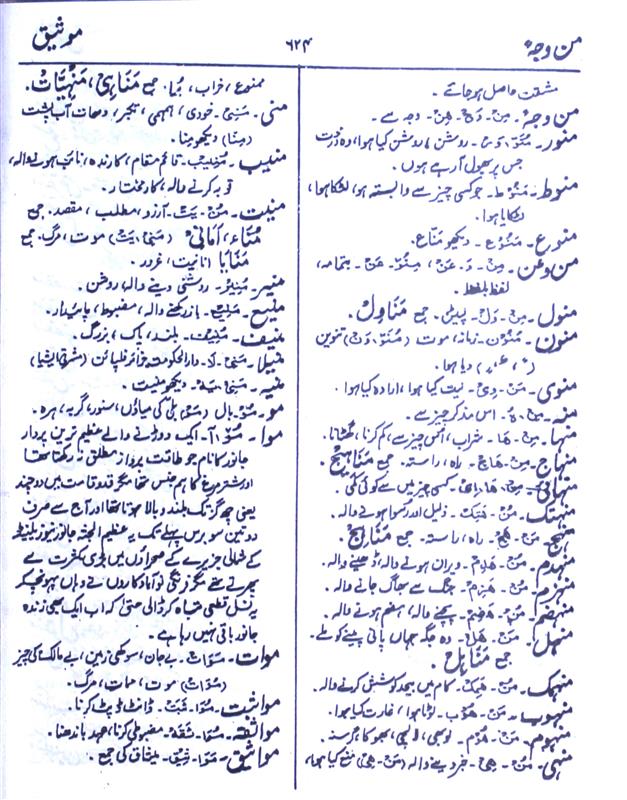 من وجہٍ
۶۲۴
موثیق
مشقت حاصل ہو جائے۔
من وجہٍ۔ مِنْ۔ وَجْ۔ ہِنْ۔ وجہ سے۔
منور۔ مُنَوْ، وَرْ۔ روشن، روشن کیا ہوا، وہ درخت
جس پر پھول آرہے ہوں۔
منوط۔ مَنُوْط۔ جو کسی چیز سے وابستہ ہو، لٹکا ہوا،
لٹکایا ہوا۔
منوع۔ مَنُوْع۔ دیکھو منّاع۔
من وعن۔ مِنْ۔ وَ۔ عَنْ، مِنُوْ۔ عَنْ۔ بتمامہ،
لفظ بلفظ۔
منول۔ مِنْ۔ وَلْ۔ جمع مَنَاوِل۔
منون۔ مَنُوْن۔ زمانہ، موت (مُنَوْ، وَنْ) تنوین
دیا ہوا۔
منوی۔ مَنْ۔ وِیْ۔ نیت کیا ہوا، ارادہ کیا ہوا۔
منہ۔ مِنْ۔ ہُ۔ اس مذکر چیز سے۔
منہا۔ مِنْ۔ ھَا۔ خراب، اس چیز سے، کم کرنا، گھٹانا۔
منہاج۔ مِنْ۔ ھَاج۔ راہ، راستہ۔ جمع مَنَاہِیْج۔
منہائی۔ کسی چیز میں سے کوئی کمی۔
منہتک۔ مُنْ۔ ھَتِکْ۔ ذلیل اور رسوا ہونے والہ۔
منہج۔ مَنْ۔ ھَجْ۔ راہ، راستہ۔ جمع مَنَاہِج۔
منہدم۔ مُنْ۔ ھَدِمْ۔ ویران ہونے والہ، ڈھینے والہ۔
منہزم۔ مُنْ۔ ھَزِمْ۔ جنگ سے بھاگ جانے والہ۔
منہضم۔ مُنْ۔ ھَضِمْ۔ پچنے والہ، ہضم ہونے والہ۔
منہل۔ مَنْ۔ ھَلْ۔ وہ جگہ جہاں پانی پینے کو ملے۔
جمع مَنَاہِل۔
منہمک۔ کام میں بیحد کوشش کرنے والہ۔
منہوب۔ مَنْ۔ ھُوْب۔ لوٹا ہوا، غارت کیا ہوا۔
منہوم۔ مَنْ۔ ھُوْم۔ لوبھی، لالچی، بھوکا
منہی۔ مُنْ۔ ھِیْ۔ خبر دینے والہ (مَنْ۔ ھِیْ) منع کیا ہوا،
ممنوع، خراب، بُرا۔ جمع مَنَاہِی، مَنْہِیَّات۔
منی۔ مَنِیْ۔ خودی، تکبر، دھات، آب پشت
(مِنَا) دیکھو منا۔
منیب۔ مُنِیْب۔ قائم مقام، کارندہ، نائب ہونے والہ،
توبہ کرنے والہ، کار مختار۔
منیت۔ مُنْ۔ یَتْ۔ آرزو، مطلب، مقصد۔ جمع
مُنَاء، اَمَانِی (مَنِیْ، یَتْ) موت، مرگ۔ جمع
مَنَایَا انانیت، غرور۔
منیر۔ مُنِیْر۔ روشنی دینے والہ، روشن۔
منیع۔ مَنِیْع۔ باز رکھنے والہ، مضبوط، پاسدار۔
منیف۔ مُنِیْف۔ بلند، پاک، بزرگ۔
منیلا۔ مَنِیْ۔ لَا۔ دارالحکومت جزائر فلپائن (مشرقی ایشیا)
منیہ۔ دیکھو منیت۔
مو۔ مُوْ۔ بال (مَوْ) بلی کی میاؤں، سنور، گربہ، ہرہ۔
موا۔ مُوْ۔ آ۔ ایک دوڑنے والے عظیم ترین پردار
جانور کا نام جو طاقت پرواز مطلق نہ رکھتا تھا
اور شتر مرغ کا ہم جنس تھا مگر قد و قامت میں دو چند
یعنی چھ گز تک بلند و بالا ہوتا تھا اور آج سے صرف
دو تین سو برس پہلے تک یہ عظیم الجثہ جانور نیوزیلینڈ
کے شمالی جزیرے کے صحراؤں میں بڑی کثرت سے
پھرتے تھے مگر فرنگی نوآبادکاروں نے وہاں پہونچکر
یہ نسل قطعی تباہ کر ڈالی حتیٰ کہ اب ایک بھی زندہ
جانور باقی نہیں رہا ہے۔
موات۔ مَوَات۔ بے جان، سوکھی زمین، بے مالک کی چیز
(مُوَات) موت، ممات، مرگ۔
مواثبت۔ مُوَا۔ ثَبَتْ۔ ڈانٹ ڈپٹ کرنا۔
مواثقہ۔ مُوَا۔ ثَقَہْ۔ مضبوطی کرنا، عہد باندھنا۔
مواثیق۔ مَوَا۔ ثِیْق۔ میثاق کی جمع۔